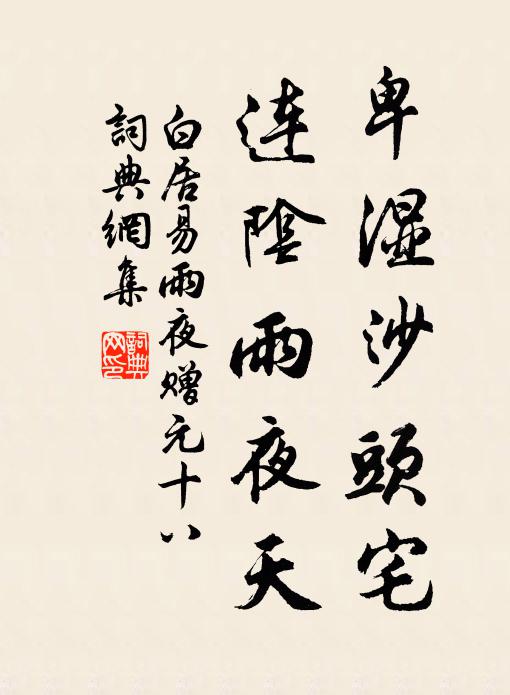 卑湿沙頭宅
連陰雨夜天
白居易雨夜赠元十八
詞典網集
詞典网印